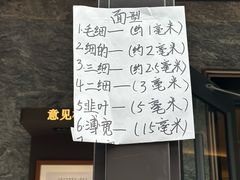 面型
1.毛细—(约1毫米)
2.细的—(约2毫米)
3.三细—(约2.5毫米)
4.二细—(3毫米)
5.韭叶—(5毫米)
6.薄宽—(15毫米)
意见